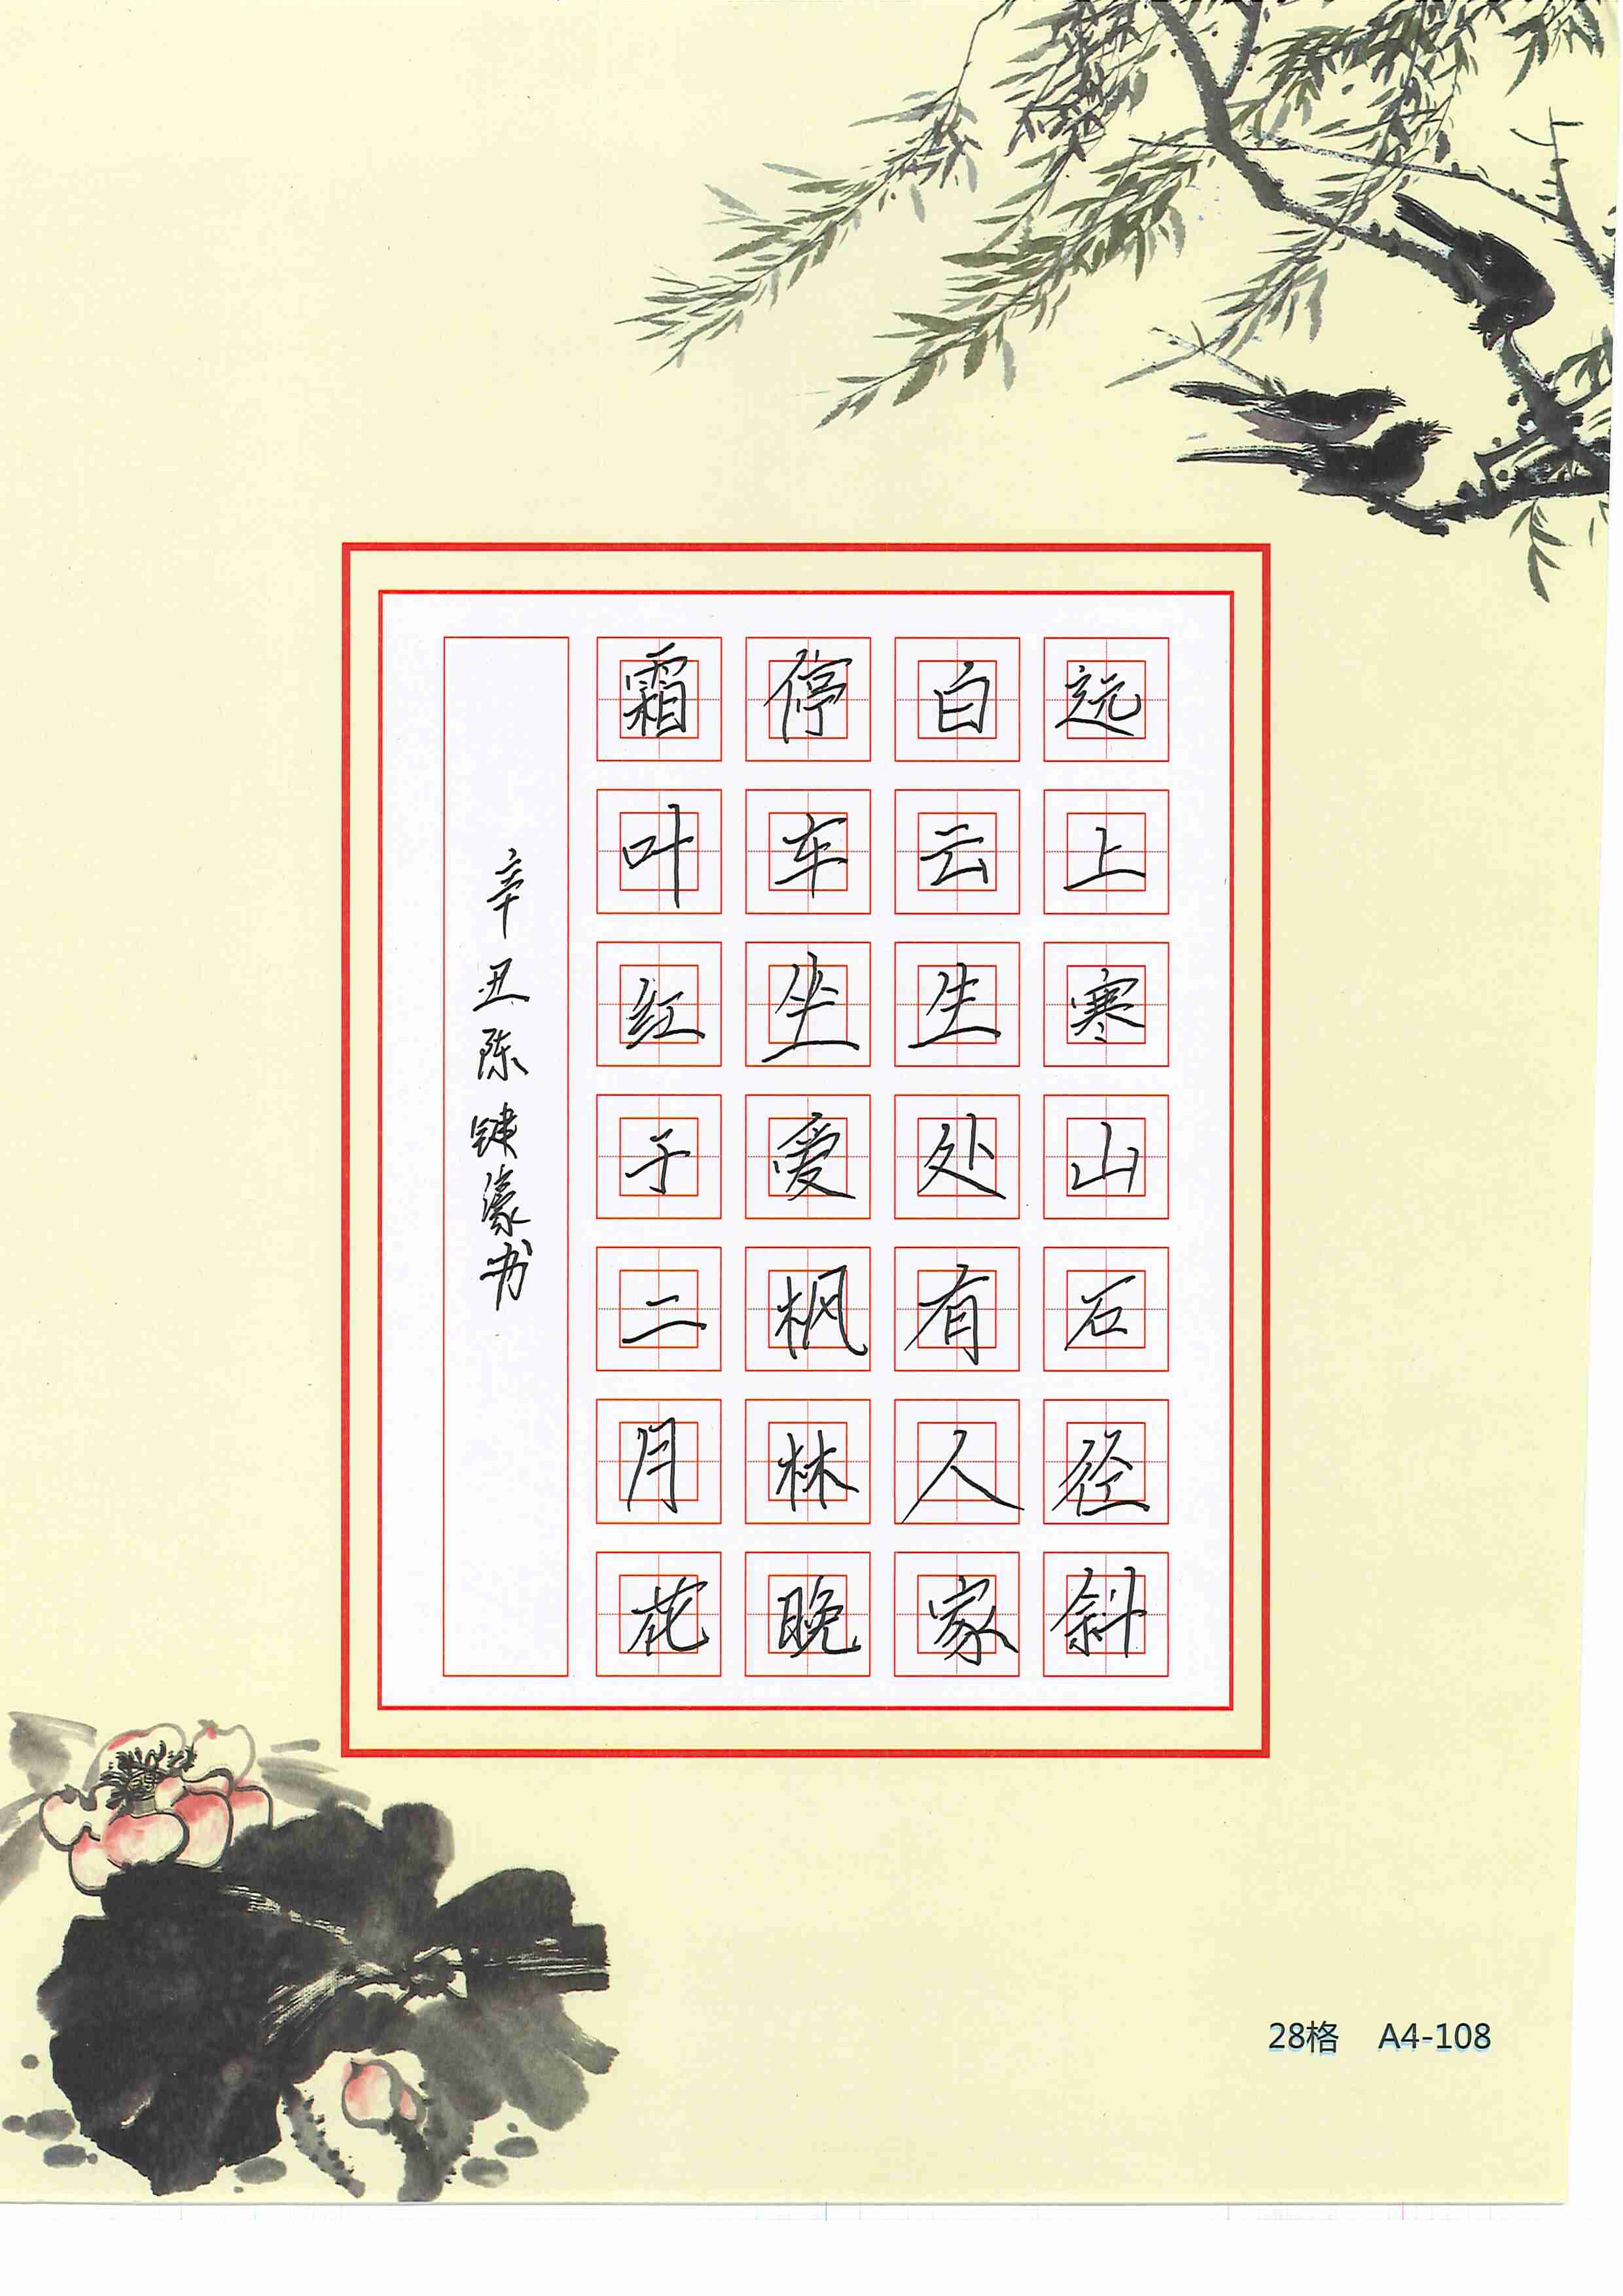 远上寒山石径斜
白云生处有人家
停车坐爱枫林晚
霜叶红于二月花
辛丑陈键濠书
28格 A4-108